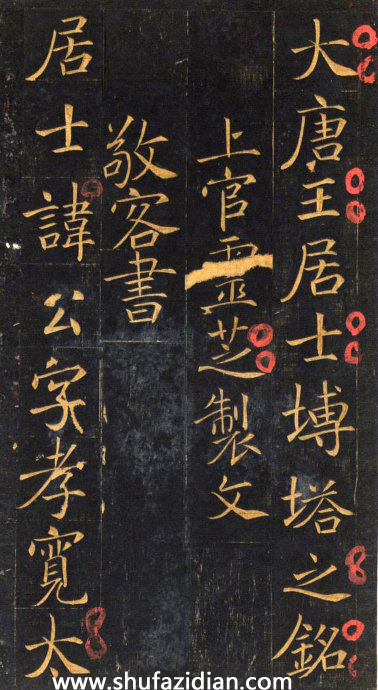 大唐王居士塼塔之銘
上官靈芝製文
敬客書
居士諱公字孝寬太
www.shufazidian.com